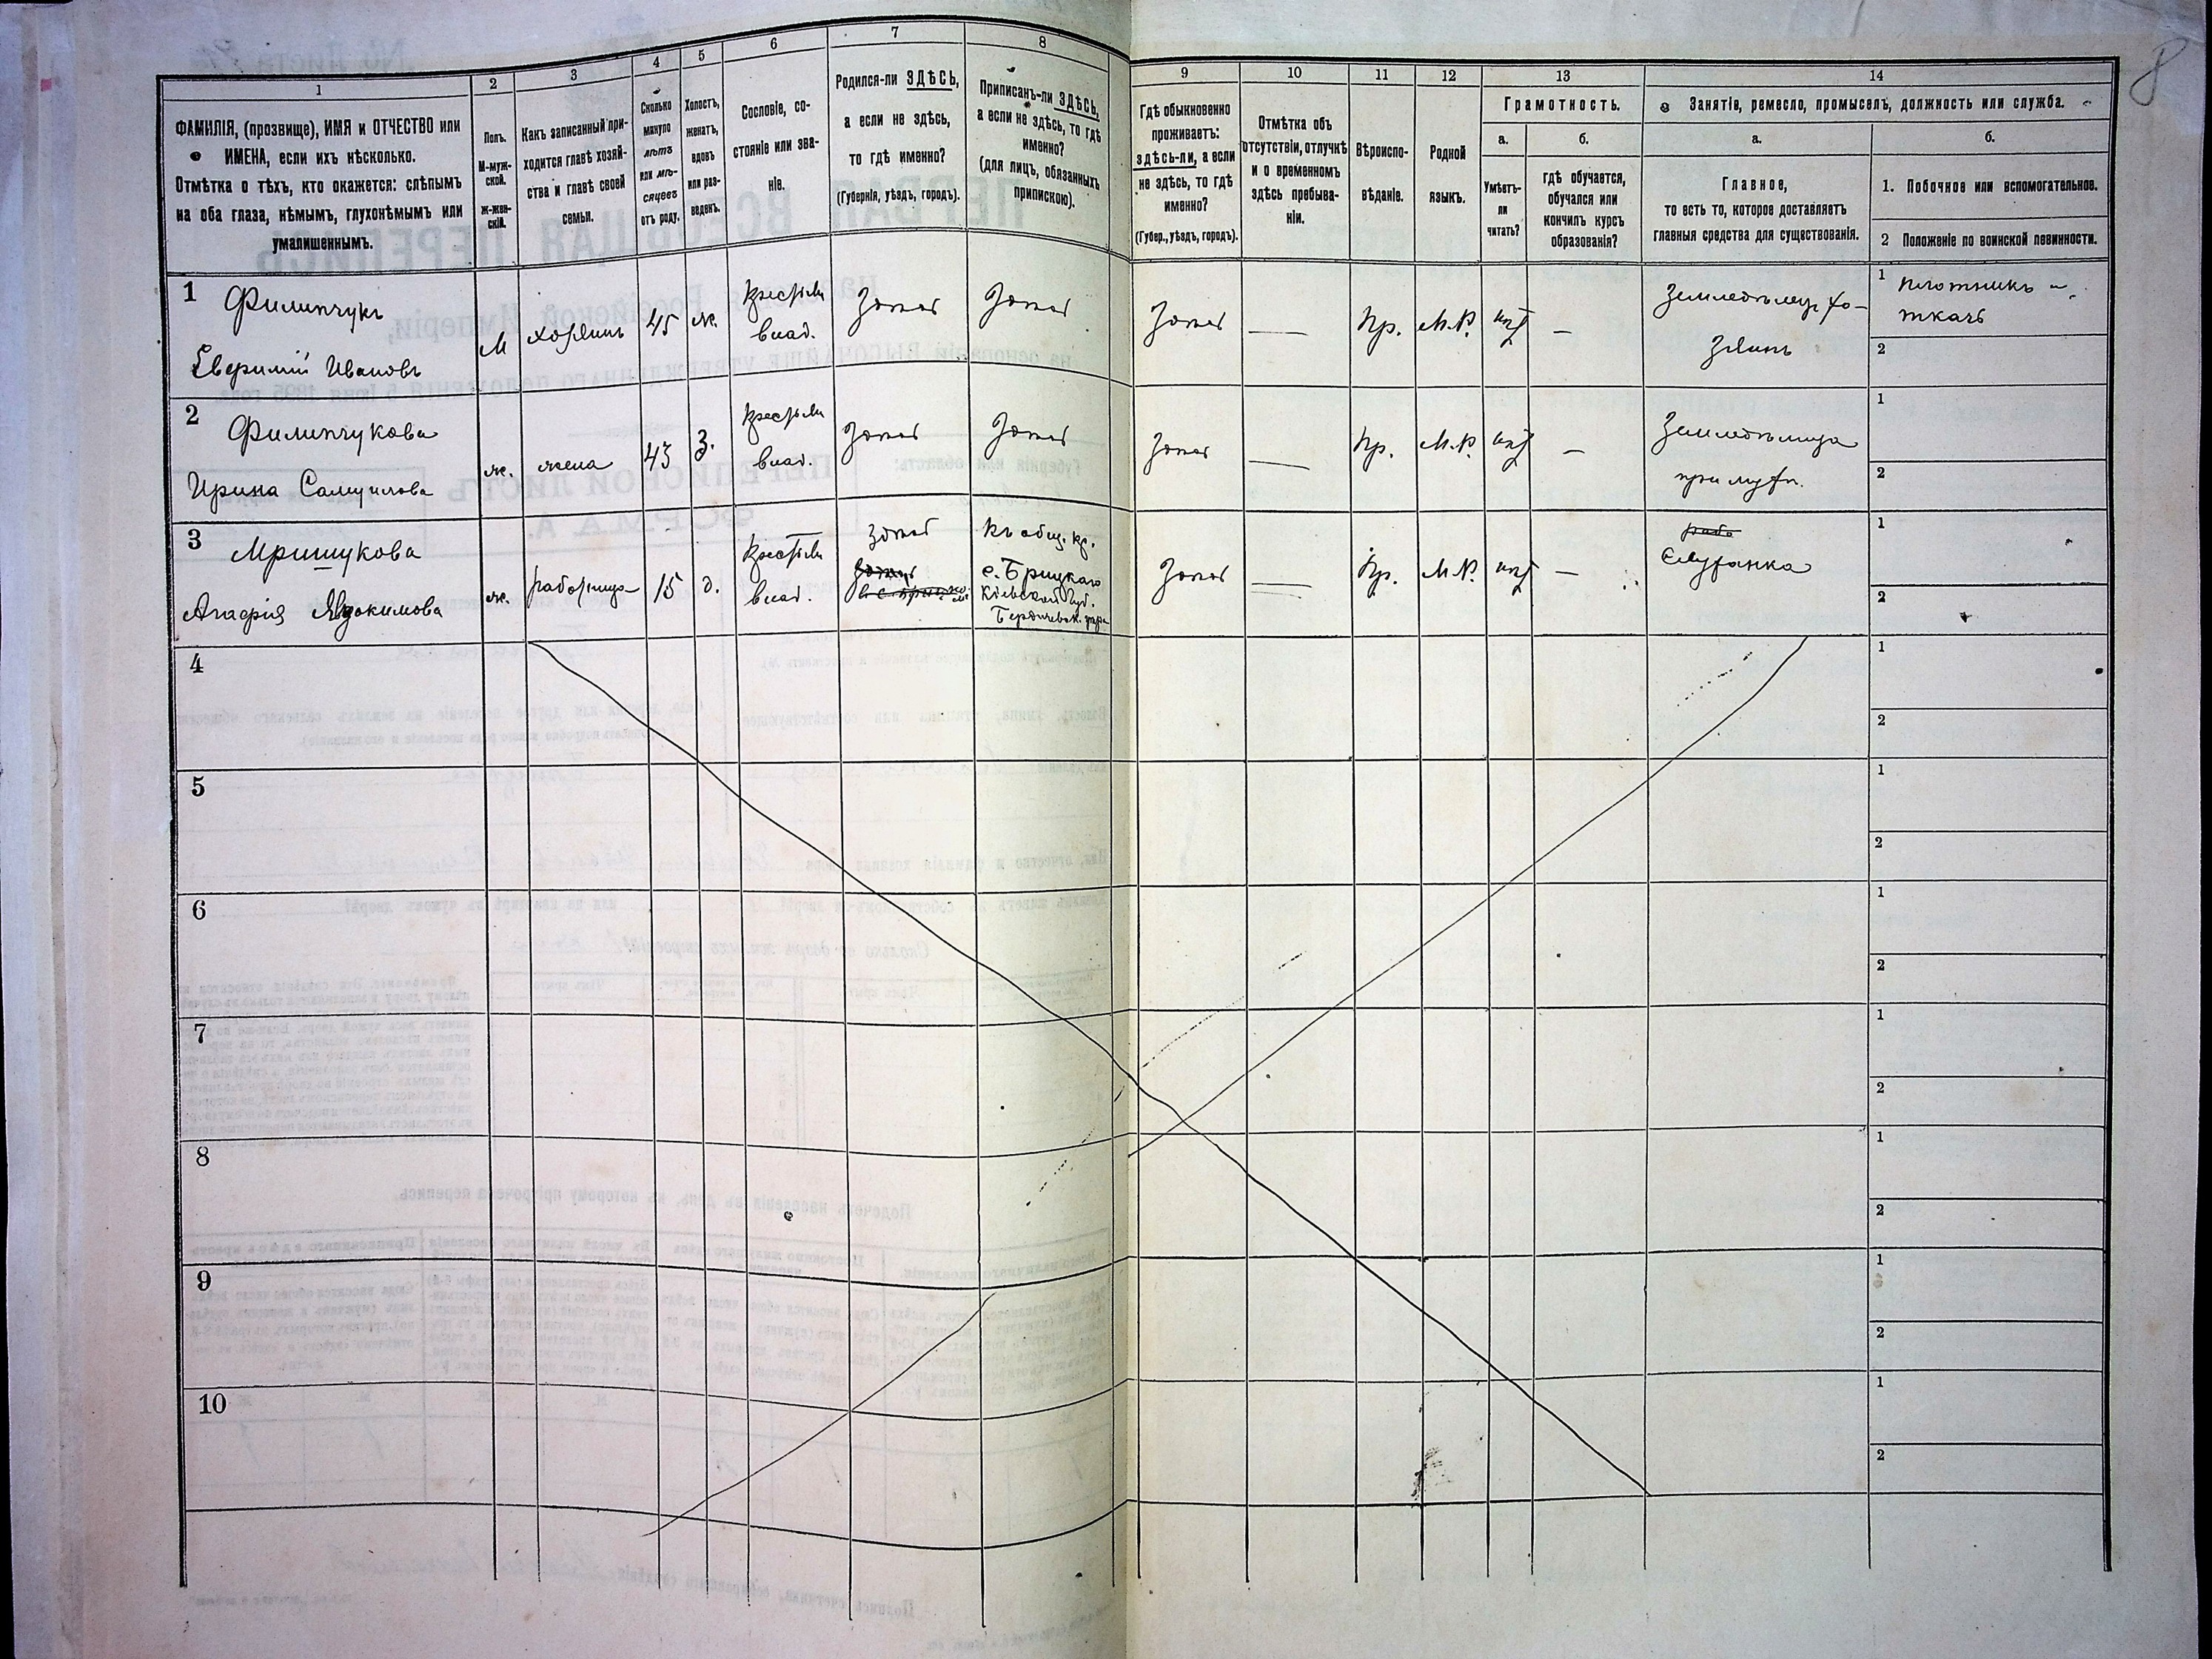 8
1
ФАМИЛІЯ, (прозвище), ИМЯ и ОТЧЕСТВО или
ИМЕНА, если ихъ нѣсколько.
Отмѣтка о тѣхъ, кто окажется: слѣпымъ
на оба глаза, нѣмымъ, глухонѣмымъ или
умалишеннымъ.
2
Полъ.
М-муж-
ской.
ж-жен-
скій.
3
Какъ записанный при-
ходится главѣ хозяй-
ства и главѣ своей
семьи.
4
Сколько
минуло
лѣтъ
или мѣ-
сяцевъ
отъ роду.
5
Холостъ,
женатъ,
вдовъ
или раз-
веденъ.
6
Сословіе, со-
стояніе или зва-
ніе.
7
Родился-ли ЗДѢСЬ,
а если не здѣсь,
то гдѣ именно?
(Губернія, уѣздъ, городъ).
8
Приписанъ-ли ЗДѢСЬ,
а если не здѣсь, то гдѣ
именно?
(для лицъ, обязанныхъ
припискою).
9
Гдѣ обыкновенно
проживаетъ:
здѣсь-ли, а если
не здѣсь, то гдѣ
именно?
(Губер., уѣздъ, городъ).
10
Отмѣтка объ
отсутствіи, отлучкѣ
и о временномъ
здѣсь пребыва-
ніи.
11
Вѣроиспо-
вѣданіе.
12
Родной
языкъ.
13
Грамотность.
а.
Умѣетъ-
ли
читать?
б.
гдѣ обучается,
обучался или
кончилъ курсъ
образованія?
14
Занятіе, ремесло, промыселъ, должность или служба.
а.
Главное,
то есть то, которое доставляетъ
главныя средства для существованія.
б.
1. Побочное или вспомогательное.
2 Положеніе по воинской повинности.
1
Филипчукъ
Евфимій Ивановъ
М
хозяинъ
45
ж.
Крестьян
влад.
Здѣсь
Здѣсь
Здѣсь
—
Пр.
М.Р.
нѣт
—
Земледѣлецъ хо-
зяинъ
1 плотникъ и
ткачь
2
2
Филипчукова
Ирина Самуилова
ж.
жена
43
З.
Крестьян
влад.
Здѣсь
Здѣсь
Здѣсь
—
Пр.
М.Р.
нѣт
—
Земледѣлица
при муж.
1
2
3
Мришукова
Агафія Явдокимова
ж.
работница
15
д.
Крестьян
влад.
Здѣсь
Къ общ. кр.
с. Брицкаго
Кіевской губ.
Бердичевск. уѣзда
Здѣсь
—
Пр.
М.Р.
нѣт
—
Служанка
1
2
4
1
2
5
1
2
6
1
2
7
1
2
8
1
2
9
1
2
10
1
2